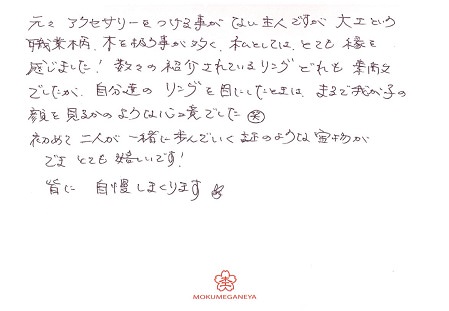 元々 アクセサリーをつける事が ない主人ですが 大工という
職業柄、木を扱う事が多く、私としては、とても縁を
感じました！ 数々の紹介されているリング どれも素敵
でしたが、自分達の リングを目にしたときは、まるで我が子の
顔を見るかのような心境でした 笑
初めて 二人が 一緒に歩んでいく証のような宝物が
でき とても嬉しいです！
皆に 自慢しまくります
MOKUMEGANEYA